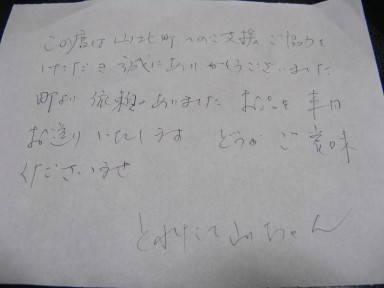 この度は山北町へのご支援ご協力を
いただき誠にありがとうございました
町より依頼のありましたお品を本日
お送りいたします どうかご賞味
くださいませ
とれたて山ちゃん